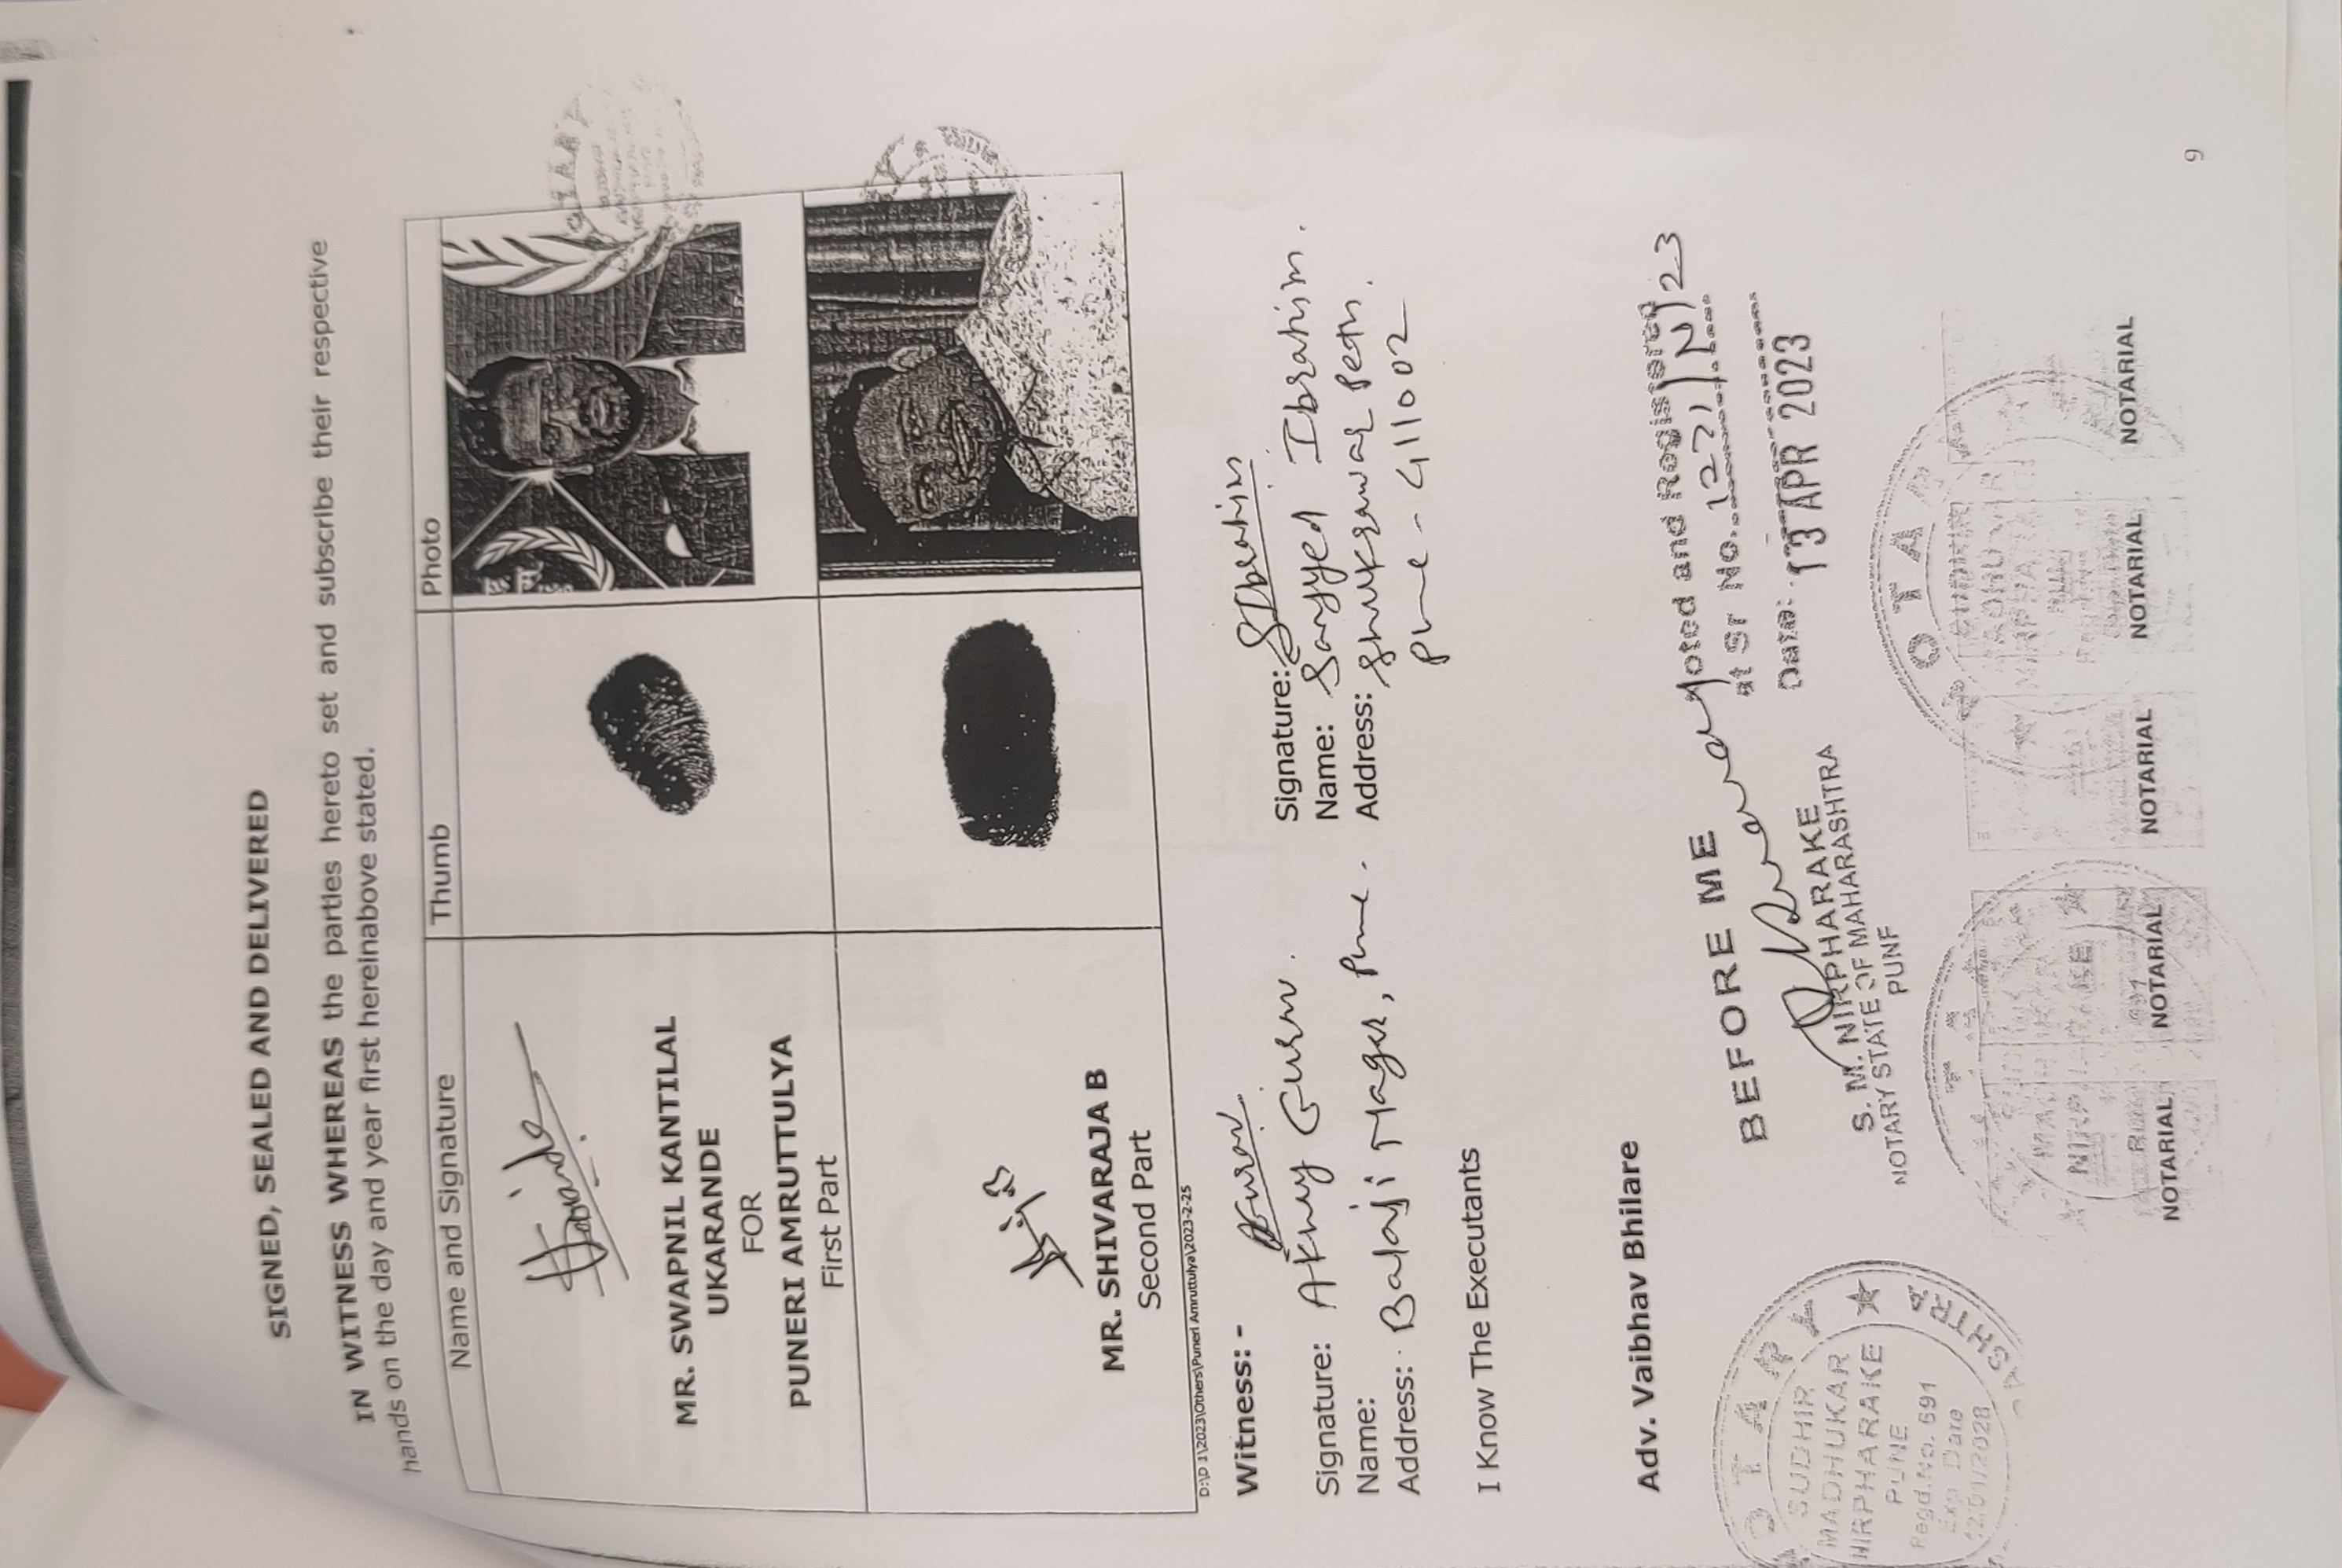 SIGNED, SEALED AND DELIVERED
IN WITNESS WHEREAS the parties hereto set and subscribe their respective
hands on the day and year first hereinabove stated.
Name and Signature
Thumb
Photo
MR. SWAPNIL KANTILAL
UKARANDE
FOR
PUNERI AMRUTTULYA
First Part
MR. SHIVARAJA B
Second Part
D:\D 1\2023\Others\Puneri Amruttulya\2023-2-25
Witness: -
Gurav
Signature: Akhay Gurav.
Name:
Address: Balaji Nagar, Pune.
Signature: SIbrahim
Name: Sayyed Ibrahim.
Address: Shukrawar Peth,
Pune - 411002
I Know The Executants
Adv. Vaibhav Bhilare
BEFORE ME
S. M. NIRPHARAKE
NOTARY STATE OF MAHARASHTRA
PUNE
Noted and Registered
at Sr No. 1271/N/23
Date:
13 APR 2023
NOTARY
SUDHIR
MADHUKAR
NIRPHARAKE
PUNE
Regd.No. 691
Exp Date
12/01/2028
MADHUKAR
NIRPHARAKE
NOTARIAL
NOTARIAL
NOTARIAL
NOTARIAL
NOTARIAL
9